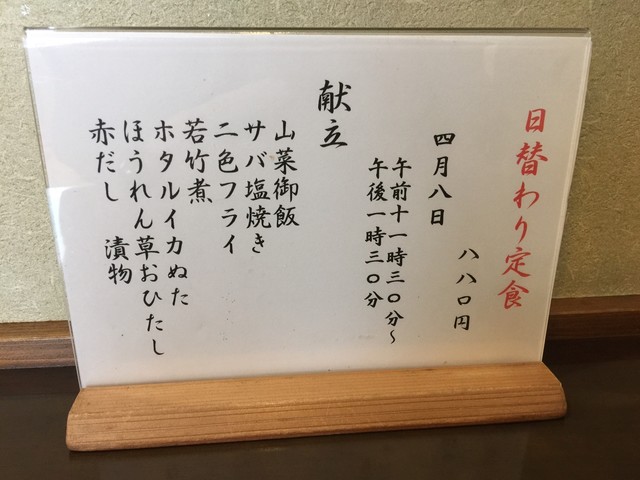 日替わり定食
八八〇円
四月八日
午前十一時三〇分～
午後一時三〇分
献立
山菜御飯
サバ塩焼き
二色フライ
若竹煮
ホタルイカぬた
ほうれん草おひたし
赤だし　漬物